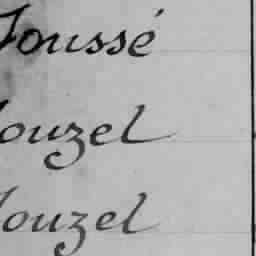 Joussé
Jouzel
Jouzel